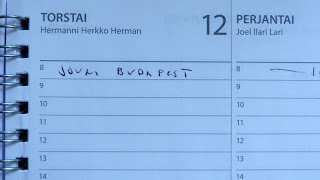 TORSTAI 12 PERJANTAI
Hermanni Herkko Herman Joel Ilari Lari
8 JOUNI BUDAPEST 8
9 9
10 10
11 11
12 12
13 13
14 14